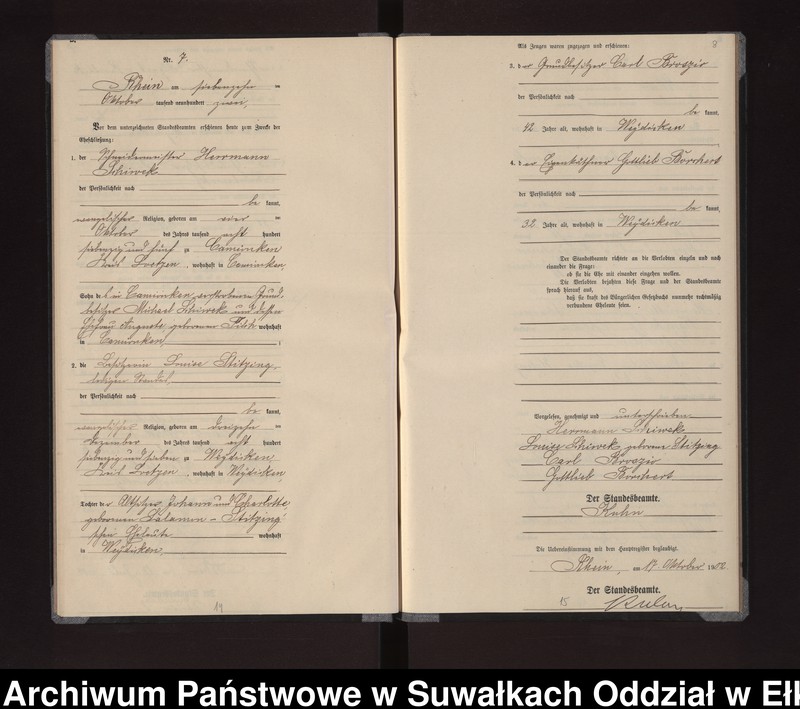 Nr. 7.
Rhein am siebenzehn ten
Oktober tausend neunhundert zwei
Vor dem unterzeichneten Standesbeamten erschienen heute zum Zweck der
Eheschließung:
1. der Schneidermeister Herrmann
Schiwek
der Persönlichkeit nach
be kannt,
evangelischer Religion, geboren am vier ten
Oktober des Jahres tausend acht hundert
siebenzig und fünf zu Camionken
Kreis Loetzen, wohnhaft in Camionken,
Sohn des in Camionken verstorbenen Grund-
besitzers Michael Schiwek und dessen
Ehefrau Auguste geborenen wohnhaft
in Camionken;
2. die Besitzerin Louise Stitzing,
ledigen Standes,
der Persönlichkeit nach
be kannt,
evangelischer Religion, geboren am dreizehn ten
Dezember des Jahres tausend acht hundert
siebenzig und sieben zu Weydicken
Kreis Loetzen, wohnhaft in Weydicken,
Tochter der Altsitzer Johann und Charlotte
geborenen Salamon - Stitzing
schen Eheleute wohnhaft
in Weydicken.
14
8
Als Zeugen waren zugezogen und erschienen:
3. der Grundbesitzer Carl Broszio
der Persönlichkeit nach
be kannt,
42 Jahre alt, wohnhaft in Weydicken
4. der Eigenkäthner Gottlieb Borchert
der Persönlichkeit nach
be kannt,
32 Jahre alt, wohnhaft in Weydicken
Der Standesbeamte richtete an die Verlobten einzeln und nach
einander die Frage:
ob sie die Ehe mit einander eingehen wollen.
Die Verlobten bejahten diese Frage und der Standesbeamte
sprach hierauf aus,
daß sie kraft des Bürgerlichen Gesetzbuchs nunmehr rechtmäßig
verbundene Eheleute seien.
Vorgelesen, genehmigt und unterschrieben
Herrmann Schiwek
Louise Schiwek geborene Stitzing
Carl Broszio
Gottlieb Borchert
Der Standesbeamte.
Kuhn
Die Uebereinstimmung mit dem Hauptregister beglaubigt.
Rhein, am 17. Oktober 1902
Der Standesbeamte.
15
Archiwum Państwowe w Suwałkach Oddział w Ełk